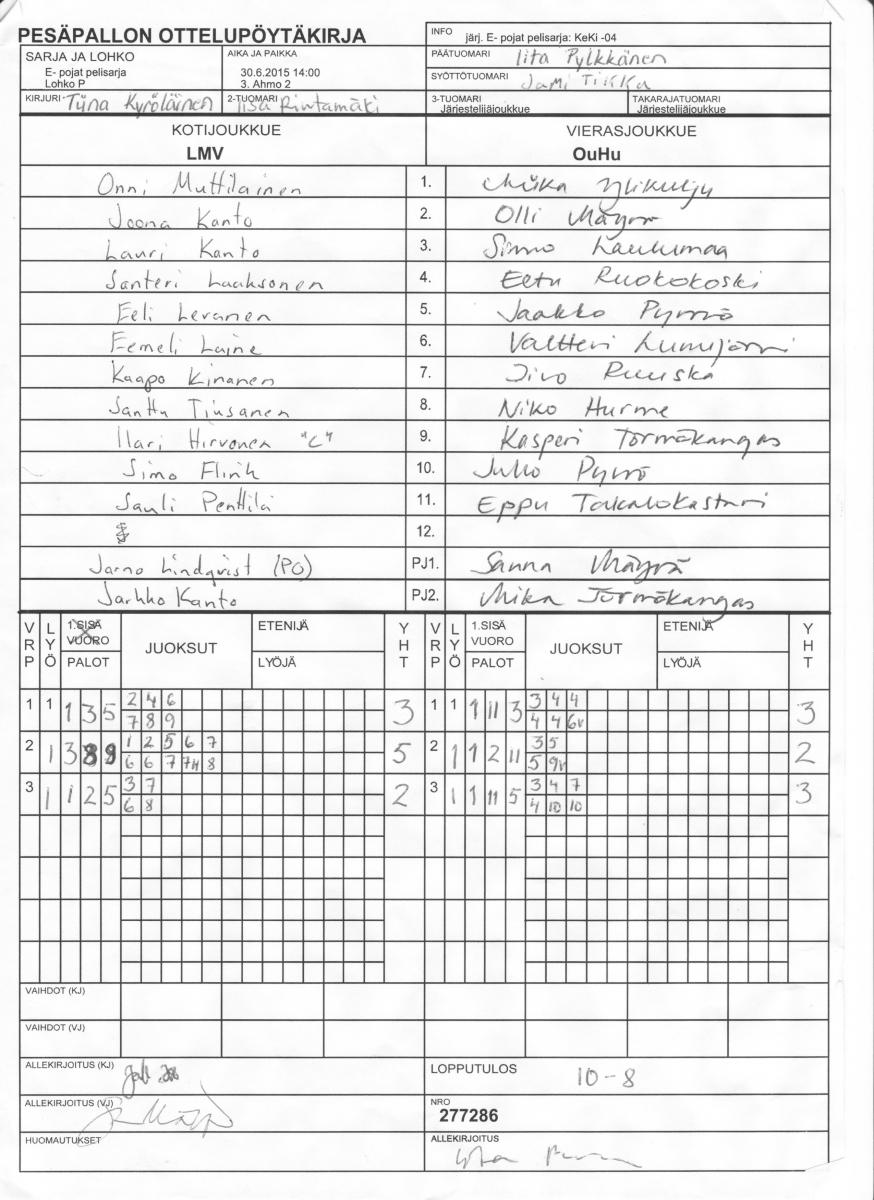 PESÄPALLON OTTELUPÖYTÄKIRJA
INFO järj. E- pojat pelisarja: KeKi -04
SARJA JA LOHKO
E- pojat pelisarja
Lohko P
AIKA JA PAIKKA
30.6.2015 14:00
3. Ahmo 2
PÄÄTUOMARI Iita Pylkkänen
SYÖTTÖTUOMARI Jami Tikka
KIRJURI Tiina Kyröläinen
2-TUOMARI Iisa Rintamäki
3-TUOMARI
Järjestelijäjoukkue
TAKARAJATUOMARI
Järjestelijäjoukkue
KOTIJOUKKUE
LMV
VIERASJOUKKUE
OuHu
Onni Muttilainen 1. Miika Ylikulju
Joona Kanto 2. Olli Mäyrä
Lauri Kanto 3. Simo Laulumaa
Santeri Laaksonen 4. Eetu Ruokokoski
Eeli Levanen 5. Jaakko Pyrrö
Eemeli Laine 6. Valtteri Lumijärvi
Kaapo Kinanen 7. Iivo Ruuska
Santtu Tiusanen 8. Niko Hurme
Ilari Hirvonen "C" 9. Kasperi Törmäkangas
Simo Flink 10. Juho Pyrrö
Sauli Penttilä 11. Eppu Takalokastari
12.
Jarno Lindqvist (PO) PJ1. Sanna Mäyrä
Jarkko Kanto PJ2. Mika Törmäkangas
VRP LYÖ 1.SISÄ VUORO PALOT JUOKSUT ETENIJÄ LYÖJÄ YHT VRP LYÖ 1.SISÄ VUORO PALOT JUOKSUT ETENIJÄ LYÖJÄ YHT
1 1 1 3 5 2 4 6 3 1 1 1 11 3 3 4 4 3
7 8 9 4 4 6v
2 1 3 8 9 1 2 5 6 7 5 2 1 1 2 11 3 5 2
6 6 7 7H 8 5 9v
3 1 1 2 5 3 7 2 3 1 1 11 5 3 4 7 3
6 8 4 10 10
VAIHDOT (KJ)
VAIHDOT (VJ)
ALLEKIRJOITUS (KJ)
LOPPUTULOS 10-8
ALLEKIRJOITUS (VJ)
NRO
277286
HUOMAUTUKSET
ALLEKIRJOITUS